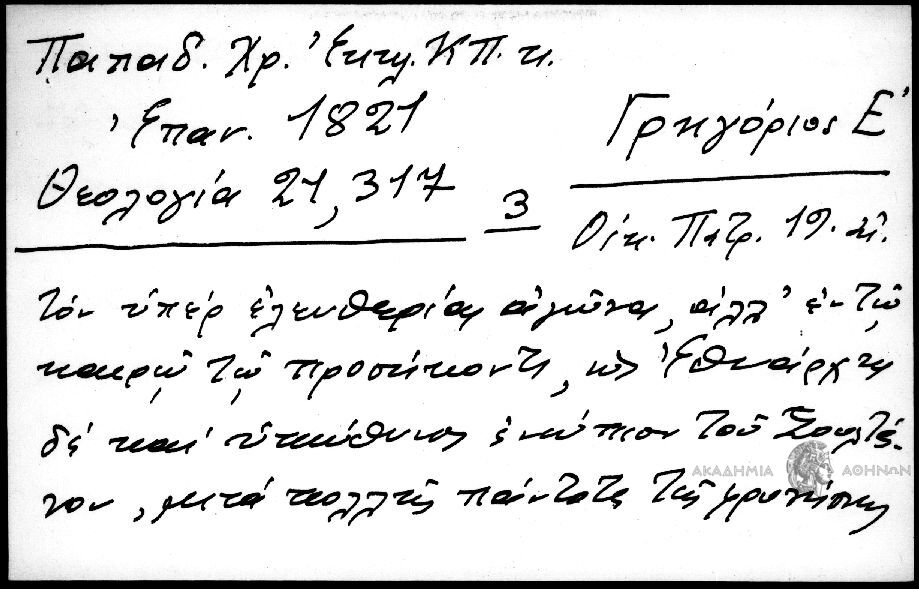 Παπαδ. Χρ. Ἐκκλ. ΚΠ. κ.
Ἐπαν. 1821
Θεολογία 21, 317
3
Γρηγόριος Ε'
Οἰκ. Πατρ. 19. αἰ.
τόν ὑπέρ ἐλευθερίας ἀγῶνα, ἀλλ' ἐν τῷ
καιρῷ τῷ προσήκοντι, ὡς Ἐθνάρχης
δέ καί ὑπεύθυνος ἐνώπιον τοῦ Σουλτά-
νου, μετά πολλῆς πάντοτε τῆς φρονήσεως
ΑΚΑΔΗΜΙΑ ΑΘΗΝΩΝ